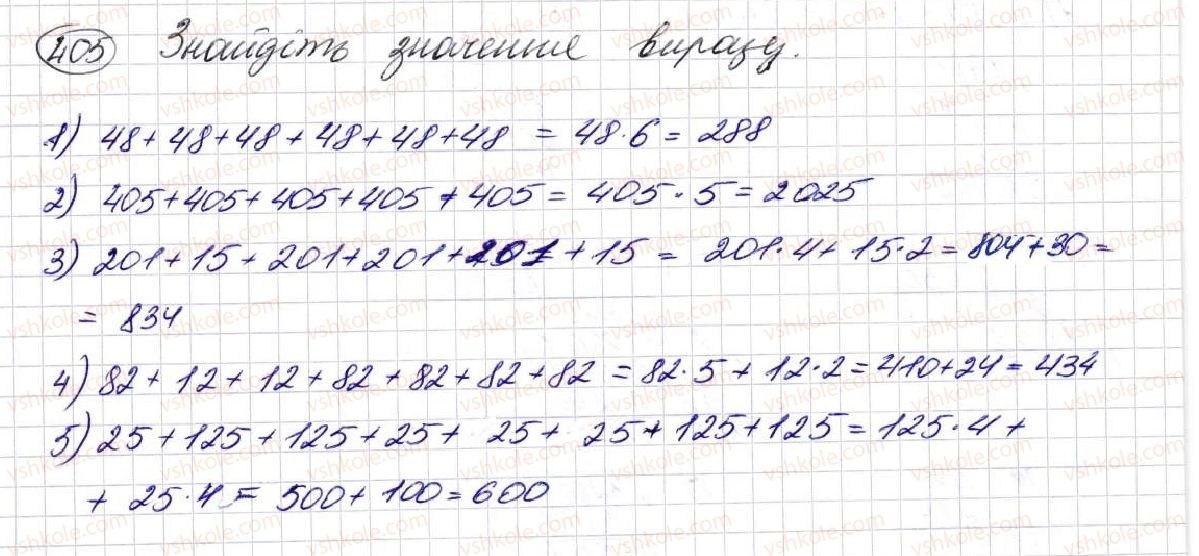 405 Знайдіть значення виразу.
1) 48 + 48 + 48 + 48 + 48 + 48 = 48 · 6 = 288
2) 405 + 405 + 405 + 405 + 405 = 405 · 5 = 2025
3) 201 + 15 + 201 + 201 + 201 + 15 = 201 · 4 + 15 · 2 = 804 + 30 =
= 834
4) 82 + 12 + 12 + 82 + 82 + 82 + 82 = 82 · 5 + 12 · 2 = 410 + 24 = 434
5) 25 + 125 + 125 + 25 + 25 + 25 + 125 + 125 = 125 · 4 +
+ 25 · 4 = 500 + 100 = 600